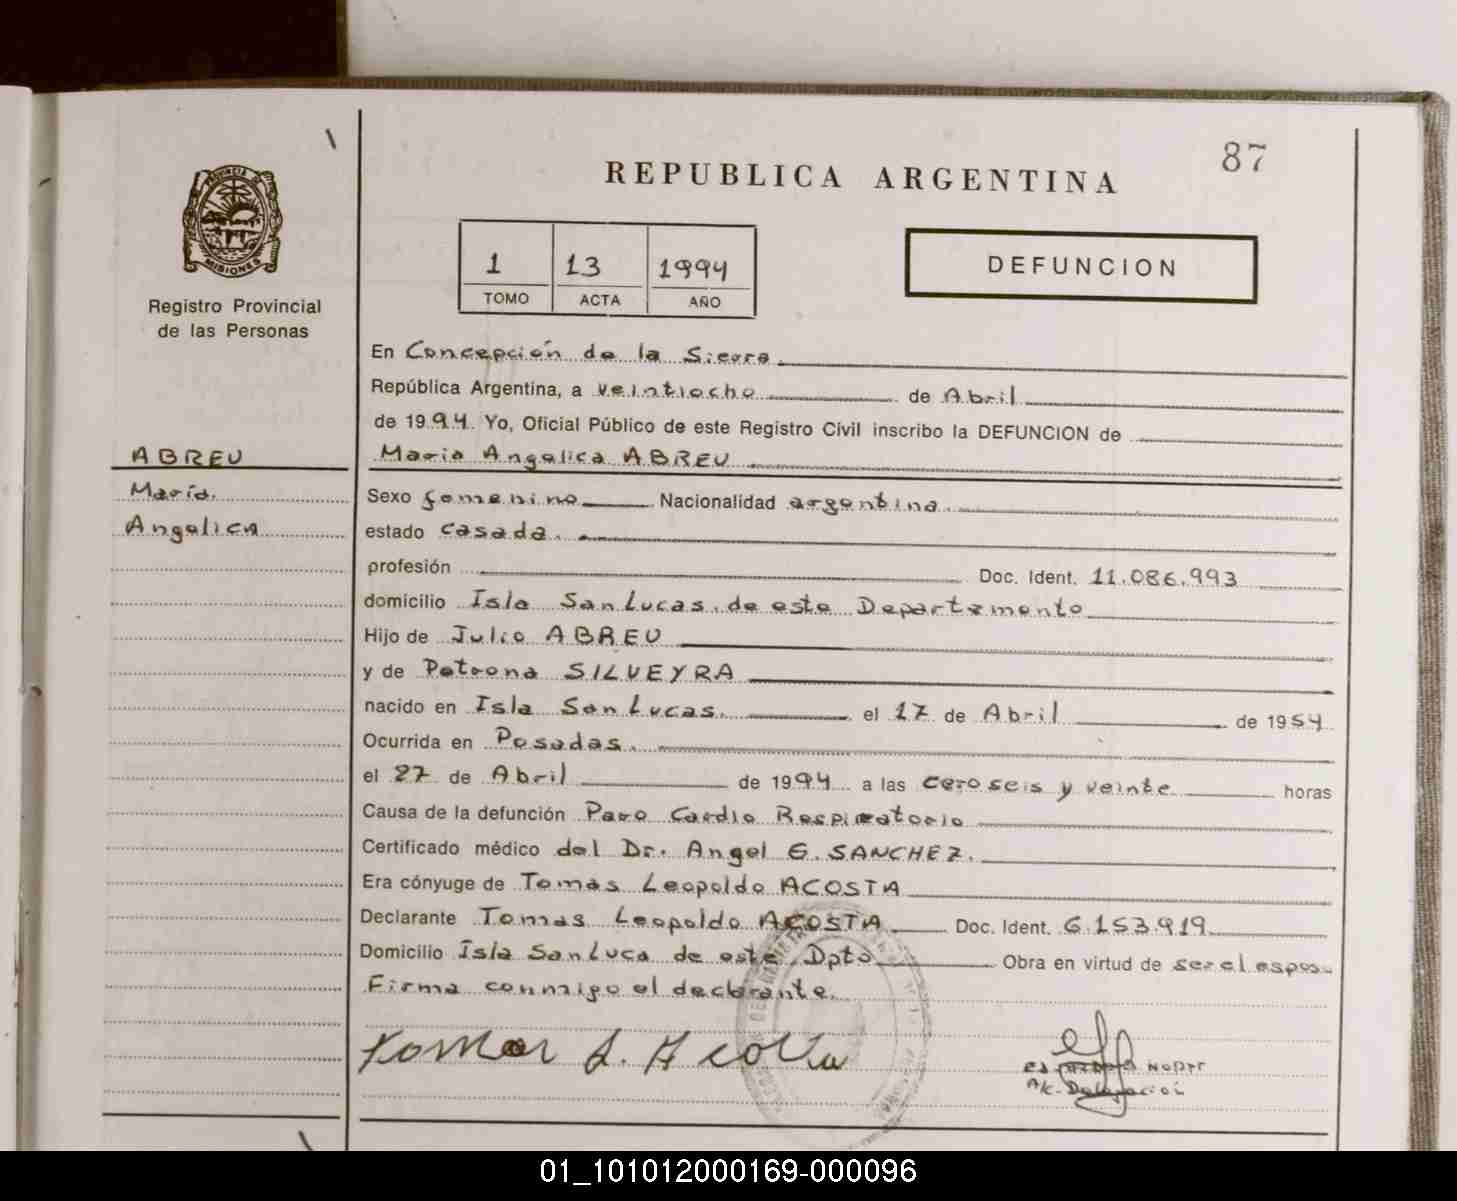 87
REPUBLICA ARGENTINA
PROVINCIA DE
MISIONES
Registro Provincial
de las Personas
1 13 1994
TOMO ACTA AÑO
DEFUNCION
En Concepción de la Sierra
República Argentina, a veintiocho de Abril
de 1994. Yo, Oficial Público de este Registro Civil inscribo la DEFUNCION de
Maria Angelica ABREU
ABREU
María
Angelica
Sexo femenino Nacionalidad argentina.
estado casada.
profesión Doc. Ident. 11.086.993
domicilio Isla San Lucas, de este Departamento
Hijo de Julio ABREU
y de Petrona SILVEYRA
nacido en Isla San Lucas. el 17 de Abril de 1954
Ocurrida en Posadas.
el 27 de Abril de 1994 a las cero seis y veinte horas
Causa de la defunción Paro Cardio Respiratorio
Certificado médico del Dr. Angel G. SANCHEZ.
Era cónyuge de Tomas Leopoldo ACOSTA
Declarante Tomas Leopoldo ACOSTA Doc. Ident. 6.153.919
Domicilio Isla San Luca de este Dpto Obra en virtud de ser el espos.
Firma conmigo el declarante.
Tomas L. Acosta
Delegación
01_101012000169-000096